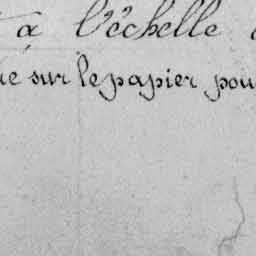 à l'échelle
sur le papier pou